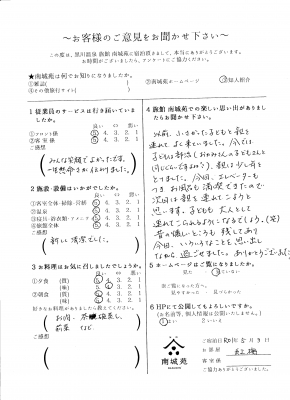 ～お客様のご意見をお聞かせ下さい～
この度は、黒川温泉 旅館 南城苑に宿泊頂きまして、本当にありがとうございます。
お時間がございましたら、アンケートにご協力ください。
★南城苑は何でお知りになりましたか。
①雑誌( )
②南城苑ホームページ
③知人紹介
④その他旅行サイト( )
1 従業員のサービスは行き届いていましたか。
良い ⇔ 悪い
①フロント係 5. 4. 3. 2. 1
②客室係 5. 4. 3. 2. 1
ご感想
みんな笑顔でよかったです。
一生懸命さが伝わりました。
2 施設・設備はいかがでしたか。
良い ⇔ 悪い
①客室全体・掃除・管理 5. 4. 3. 2. 1
②温泉 5. 4. 3. 2. 1
③寝具・浴衣類・アメニティ 5. 4. 3. 2. 1
④施設全体 5. 4. 3. 2. 1
ご感想
新しく清潔でした。
3 お料理はお気に召しましたでしょうか。
良い ⇔ 悪い
①夕食 (質) 5. 4. 3. 2. 1
(味) 5. 4. 3. 2. 1
②朝食 (質) 5. 4. 3. 2. 1
(味) 5. 4. 3. 2. 1
好きなお料理がありましたら教えてください。
お肉、茶碗蒸し、
前菜 など
ご感想
4 旅館 南城苑での楽しい思い出がありましたらお聞かせ下さい。
以前、小さかった子どもと親を
連れてよく来ていました。今では
子どもも
親は少し
とりました。今回、エレベーターも
つき お風呂も満喫できたので
次回は親を連れてこようと
思います。子どもも大人として
連れてこられるようになるでしょう。(笑)
昔の懐しいところも残してあり
今日、いろいろなことを思い出し
ながら過ごせました。ありがとうございました。
5 ホームページはご覧になりましたか。
見た
見ていない
※ご覧になった方へ
見やすかった ・ 見づらかった
6 HPにて公開してもよろしいですか。
(お名前等、個人情報は公開いたしません。)
1 はい 2 いいえ
南城苑
ご宿泊日 R01年 8月 9日
お部屋 紅梅
ご協力ありがとうございました。